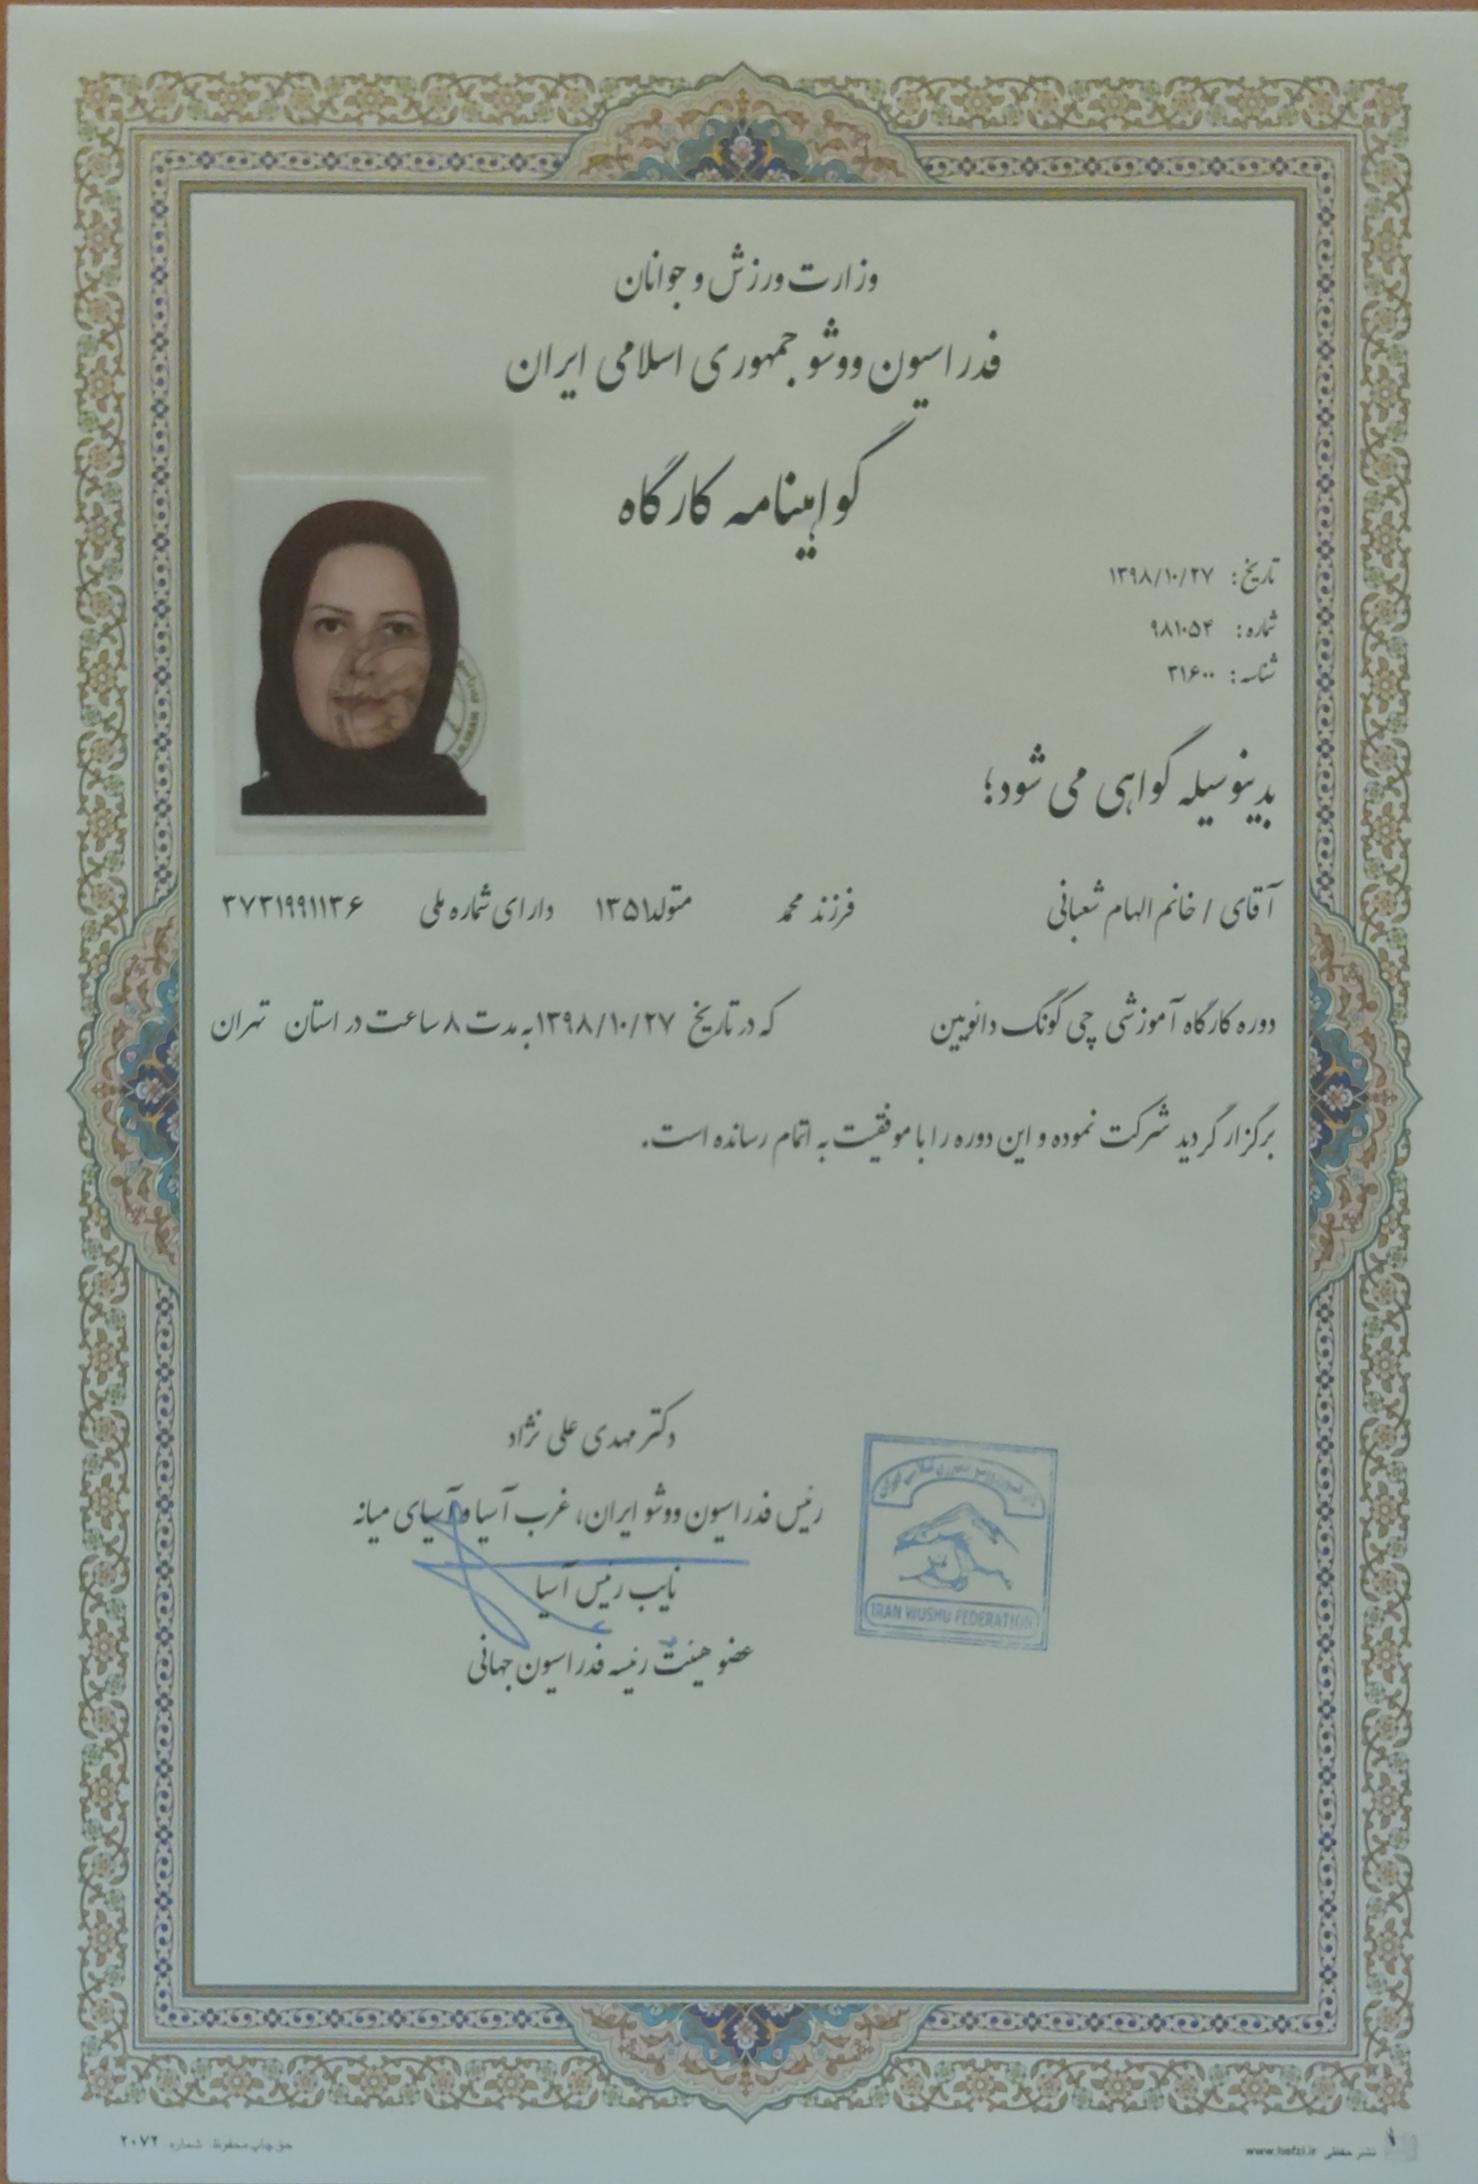 وزارت ورزش و جوانان
فدراسیون ووشو جمهوری اسلامی ایران
گواهینامه کارگاه
تاریخ: ۱۳۹۸/۱۰/۲۷
شماره: ۹۸۱۰۵۴
شناسه: ۳۱۶۰۰
بدینوسیله گواهی می شود؛
آقای / خانم الهام شعبانی فرزند محمد متولد ۱۳۵۱ دارای شماره ملی ۳۷۳۱۹۹۱۱۳۶
دوره کارگاه آموزشی چی گونگ دائویین که در تاریخ ۱۳۹۸/۱۰/۲۷ به مدت ۸ ساعت در استان تهران
برگزار گردید شرکت نموده و این دوره را با موفقیت به اتمام رسانده است.
دکتر مهدی علی نژاد
رئیس فدراسیون ووشو ایران، غرب آسیا و آسیای میانه
نایب رئیس آسیا
عضو هیئت رئیسه فدراسیون جهانی
IRAN WUSHU FEDERATION
حق چاپ محفوظ شماره ۲۰۷۲
نشر حفظی www.hefzi.ir